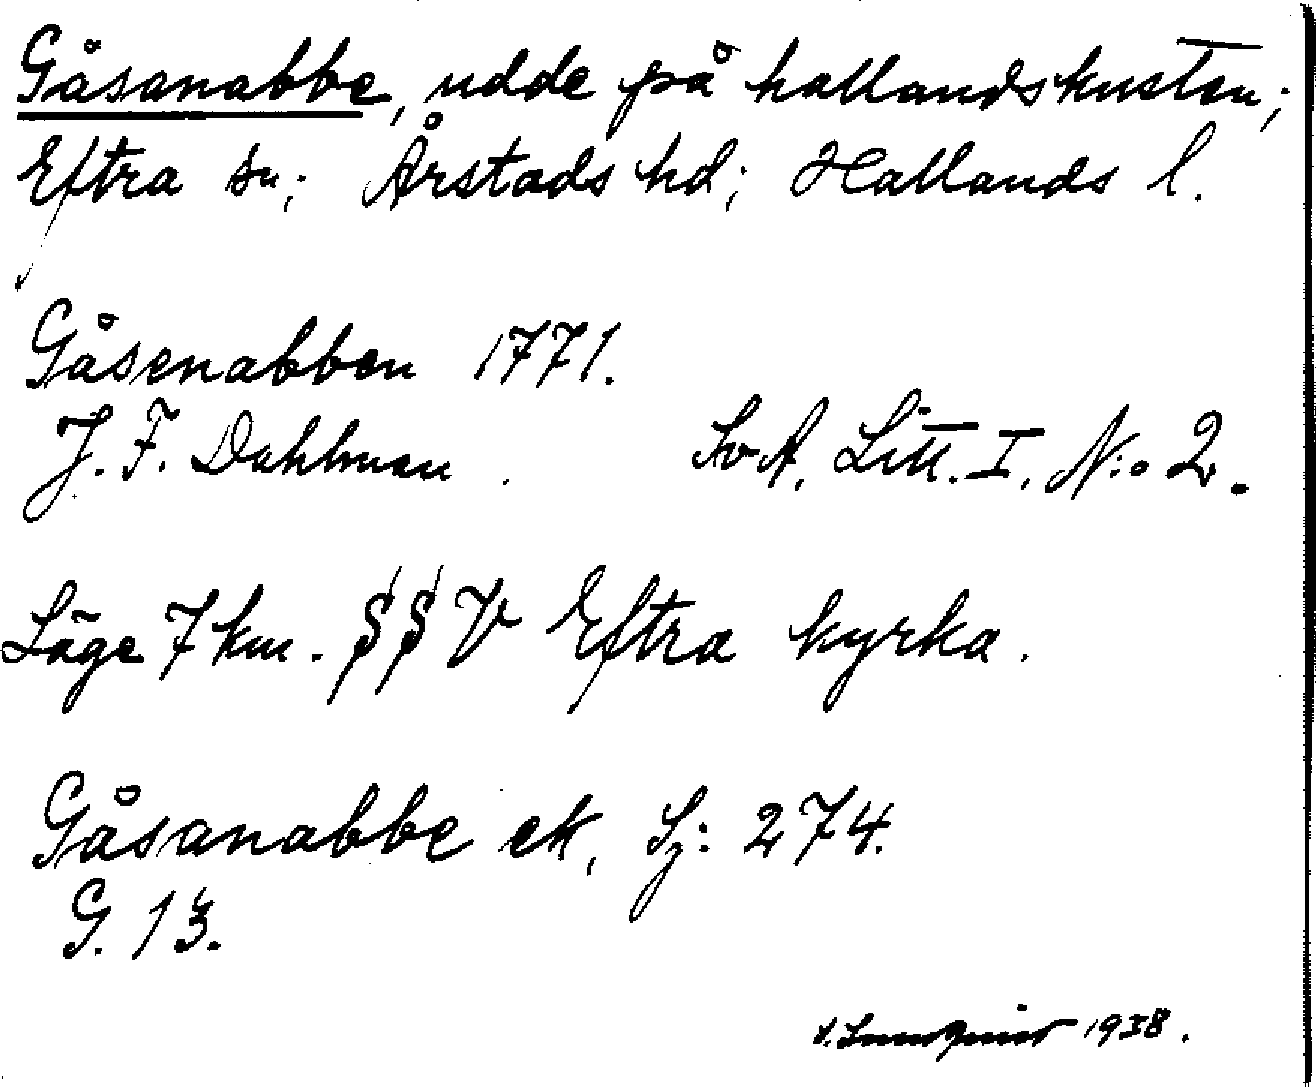 Gåsanabbe, udde på hallandskusten;
Eftra sn; Årstads hd; Hallands l.
Gåsenabben 1771.
J. F. Dahlman. SvA, Litt. I, N:o 2.
Läge 7 km. SSV Eftra kyrka.
Gåsanabbe ek, Sj: 274.
G. 13.
Lundquist 1938.